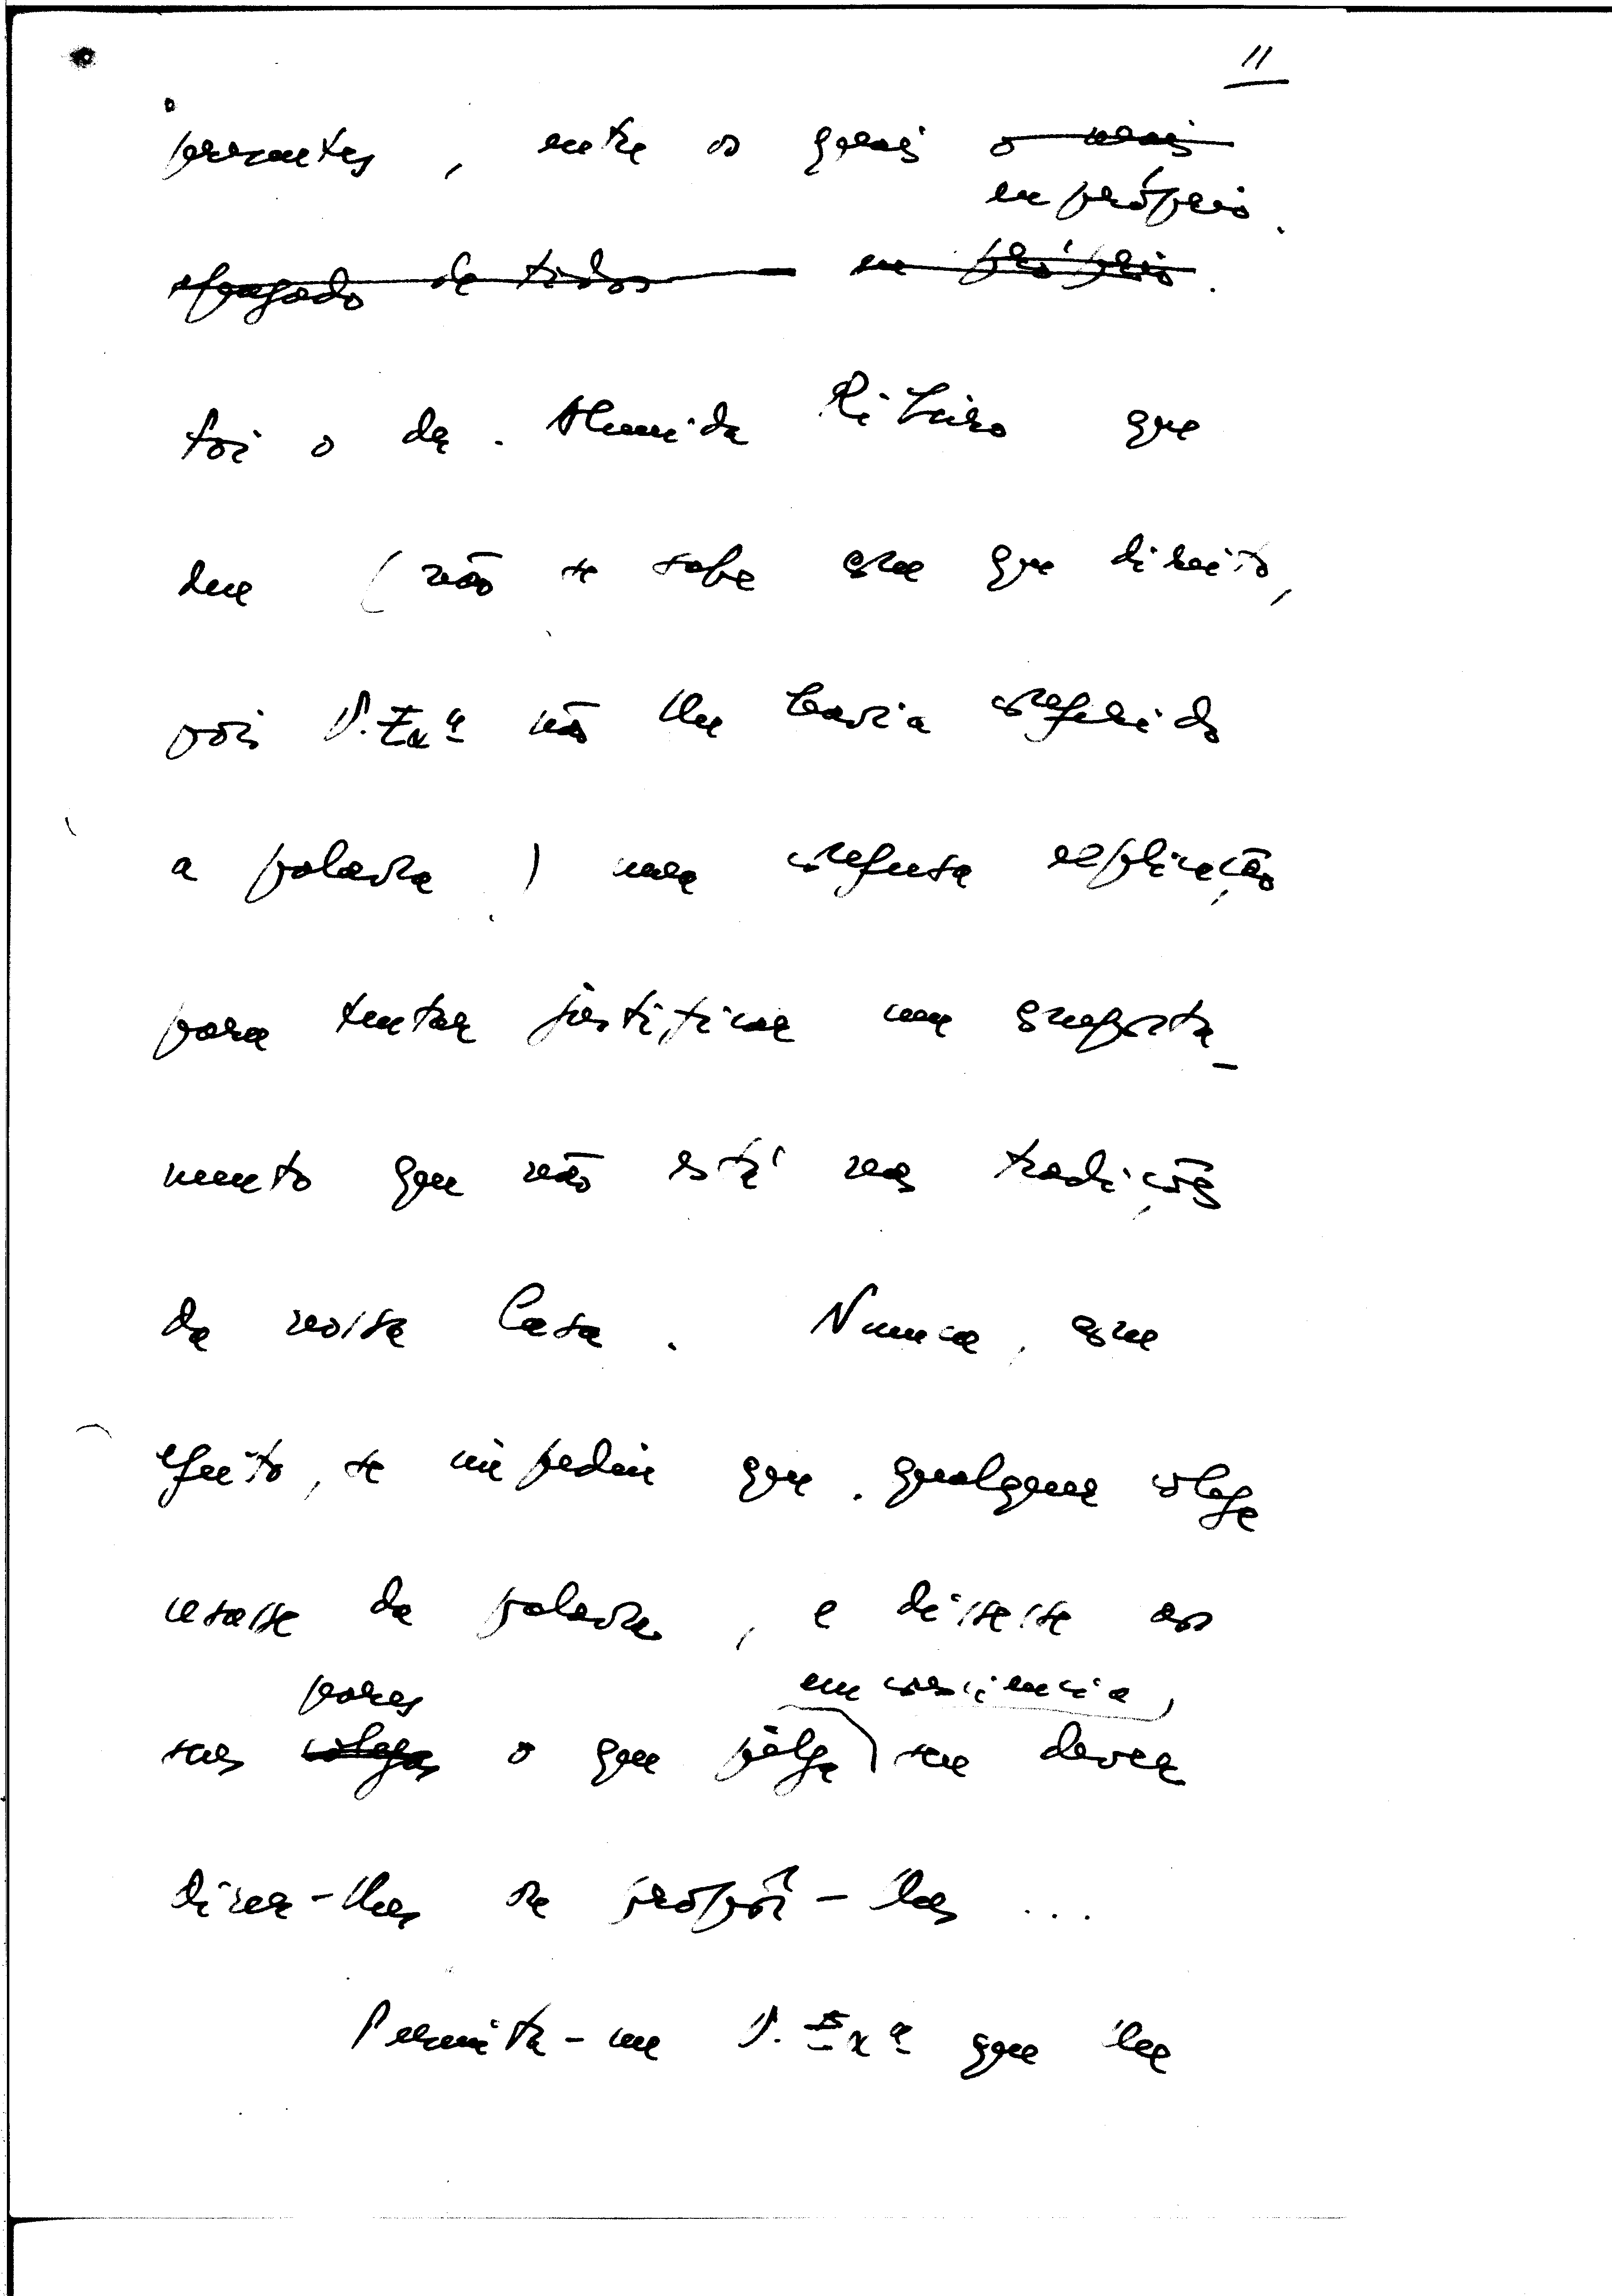 11
presentes, entre os quais o mais
eu próprio.
apagado de todos eu próprio.
Foi o dr. Almeida Ribeiro que
deu (não se sabe com que direito,
pois V. Exª não lhe havia conferido
a palavra) uma confusa explicação
para tentar justificar um comporta-
mento que não está nas tradições
da nossa Casa. Nunca, com
efeito, se impediu que qualquer colega
usasse da palavra, e dissesse aos
pares em consciência,
seus colegas o que julga seu dever
dizer-lhes ou propôr-lhes...
Permita-me V. Exª que lhe